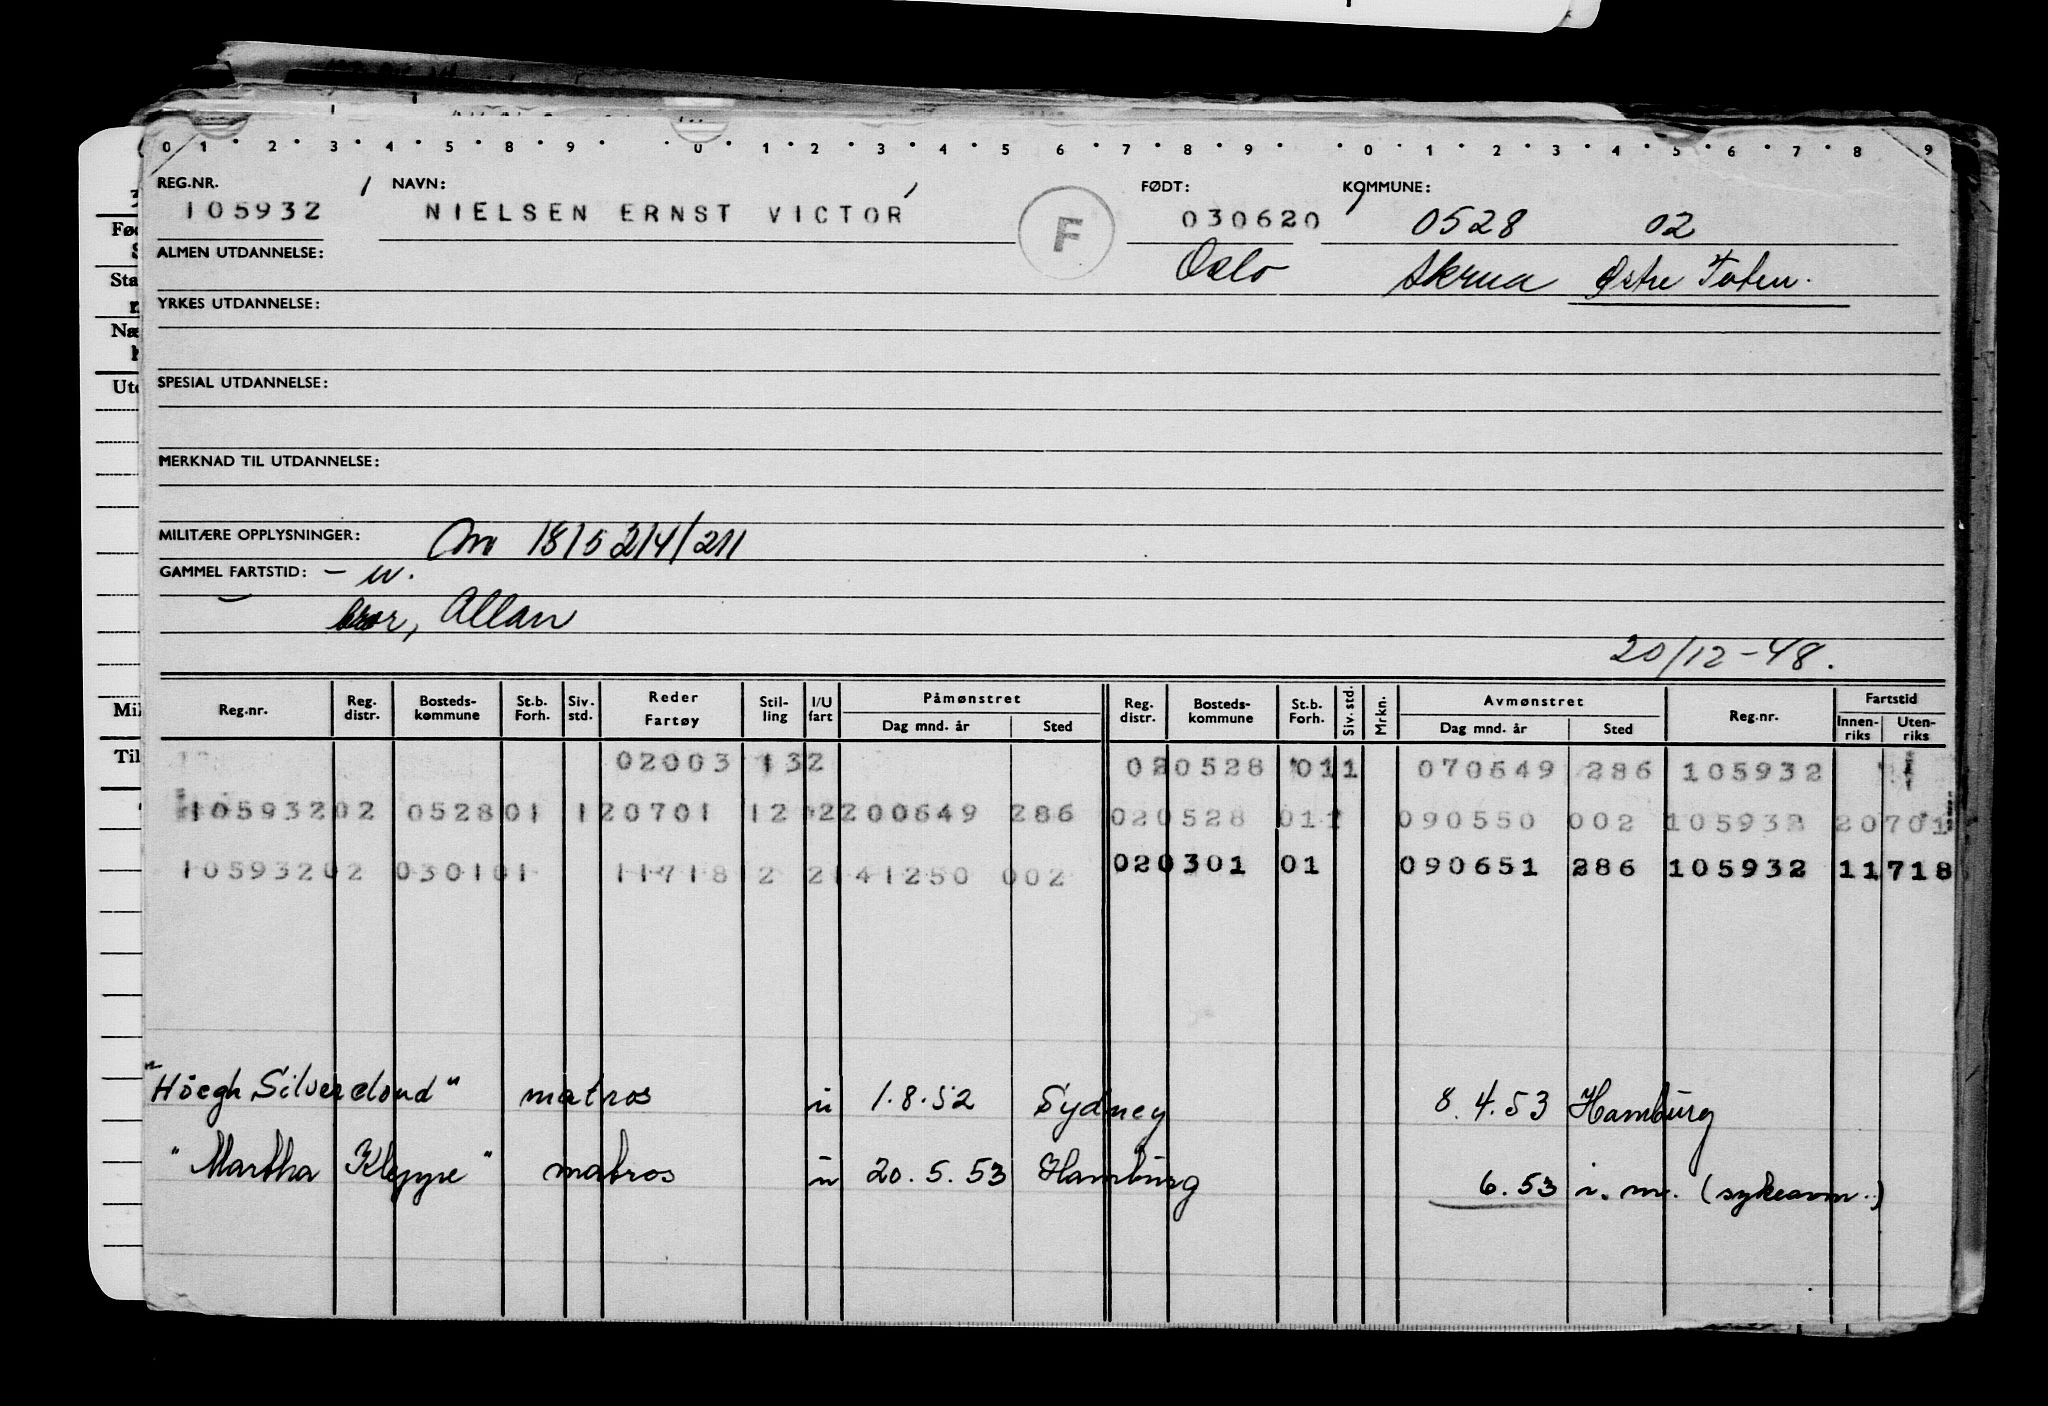 0 1 2 3 4 5 8 9 0 1 2 3 4 5 6 7 8 9 0 1 2 3 4 5 6 7 8 9
REG.NR. NAVN: FØDT: KOMMUNE:
105932 NIELSEN ERNST VICTOR F 030620 0528 02
ALMEN UTDANNELSE: Oslo Skrua Østre Toten.
YRKES UTDANNELSE:
SPESIAL UTDANNELSE:
MERKNAD TIL UTDANNELSE:
MILITÆRE OPPLYSNINGER: 1815214/211
GAMMEL FARTSTID:
bror, Allan
20/12-48.
Reg.nr. Reg. distr. Bosteds- kommune St.b. Forh. Siv. std. Reder Fartøy Stil- ling I/U fart Påmønstret Dag mnd. år Sted Reg. distr. Bosteds- kommune St.b. Forh. Siv. std. Mrkn. Avmønstret Dag mnd. år Sted Reg.nr. Fartstid Innen- riks Uten- riks
02003 132 020528 011 070649 286 105932
105932 02 0528 01 1 20701 12 2 200649 286 020528 011 090550 002 105932 20701
105932 02 0301 01 11718 2 2 141250 002 020301 01 090651 286 105932 11718
"Höegh Silvercloud" matros u 1.8.52 Sydney 8.4.53 Hamburg
"Martha Kleppe" matros u 20.5.53 Hamburg 6.53 i.m. (sykeavm.)